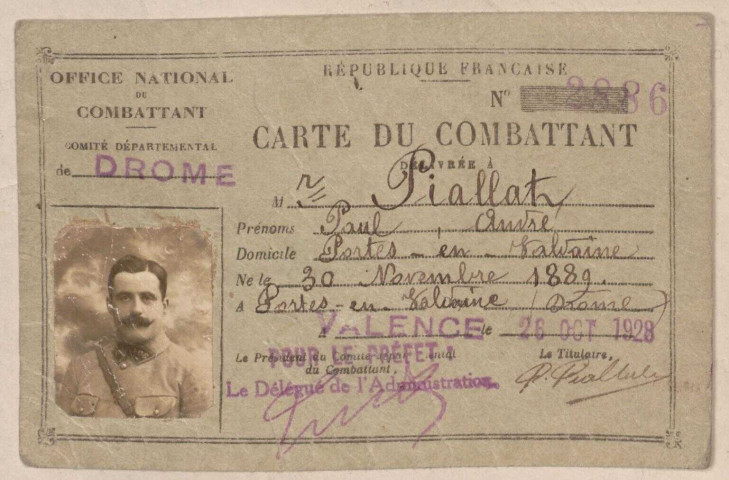 OFFICE NATIONAL
DU
COMBATTANT
COMITÉ DÉPARTEMENTAL
de DROME
RÉPUBLIQUE FRANÇAISE
N° 2886
CARTE DU COMBATTANT
DÉLIVRÉE À
M r Piallat
Prénoms Paul, André
Domicile Portes-en-Valdaine
Né le 30 Novembre 1889.
A Portes-en-Valdaine (Drome)
A VALENCE le 26 OCT 1928
Le Président du Comité départemental
du Combattant,
POUR LE PRÉFET :
Le Délégué de l'Administration
Le Titulaire,
P. Piallat